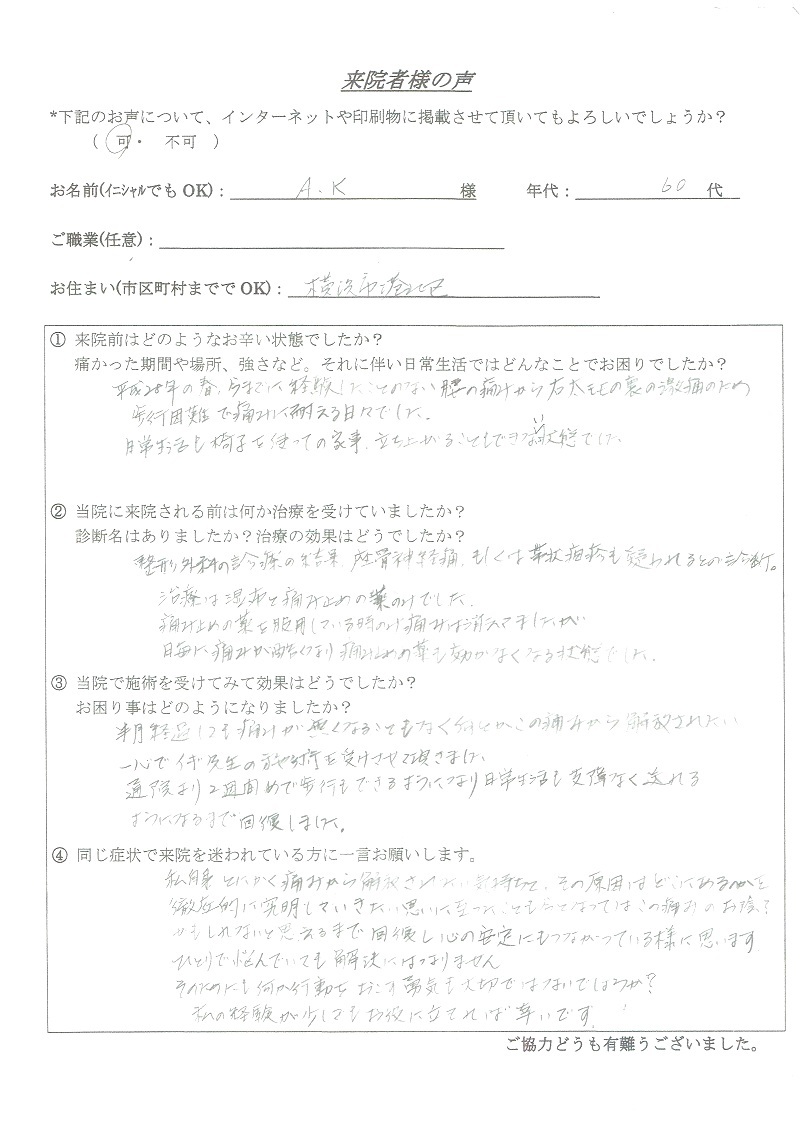 来院者様の声
*下記のお声について、インターネットや印刷物に掲載させて頂いてもよろしいでしょうか?
( 可・ 不可 )
お名前(ｲﾆｼｬﾙでも OK)： A.K 様 年代： 60 代
ご職業(任意)：
お住まい(市区町村までで OK)： 横浜市港北区
① 来院前はどのようなお辛い状態でしたか?
痛かった期間や場所、強さなど。それに伴い日常生活ではどんなことでお困りでしたか?
平成28年の春、今までに経験したことのない腰の痛みから右太ももの裏の激痛のため
歩行困難で痛みに耐える日々でした。
日常生活も椅子を使っての家事、立ち上がることもできない状態でした
② 当院に来院される前は何か治療を受けていましたか?
診断名はありましたか?治療の効果はどうでしたか?
整形外科の診療の結果、座骨神経痛、もしくは帯状疱疹も疑われるとの診断。
治療は湿布と痛み止めの薬のみでした。
痛み止めの薬を服用している時のみ痛みは消えてましたが
日毎に痛みが酷くなり痛み止めの薬も効かなくなる状態でした。
③ 当院で施術を受けてみて効果はどうでしたか?
お困り事はどのようになりましたか?
半月経過しても痛みが無くなることもなく何とかこの痛みから解放されたい
一心でイギ先生の施術を受けさせて頂きました
通院より2週間めで歩行もできるようになり日常生活も支障なく送れる
ようになるまで回復しました。
④ 同じ症状で来院を迷われている方に一言お願いします。
私自身とにかく痛みから解放されたい気持ちと、その原因はどこにあるのかを
徹底的に究明していきたい思いに至ったことも今となってはこの痛みのお陰?
かもしれないと思えるまで回復し心の安定にもつながっている様に思います
ひとりで悩んでいても解決にはなりません
そのためにも何か行動をおこす勇気も大切ではないでしょうか?
私の経験が少しでもお役に立てれば幸いです。
ご協力どうも有難うございました。